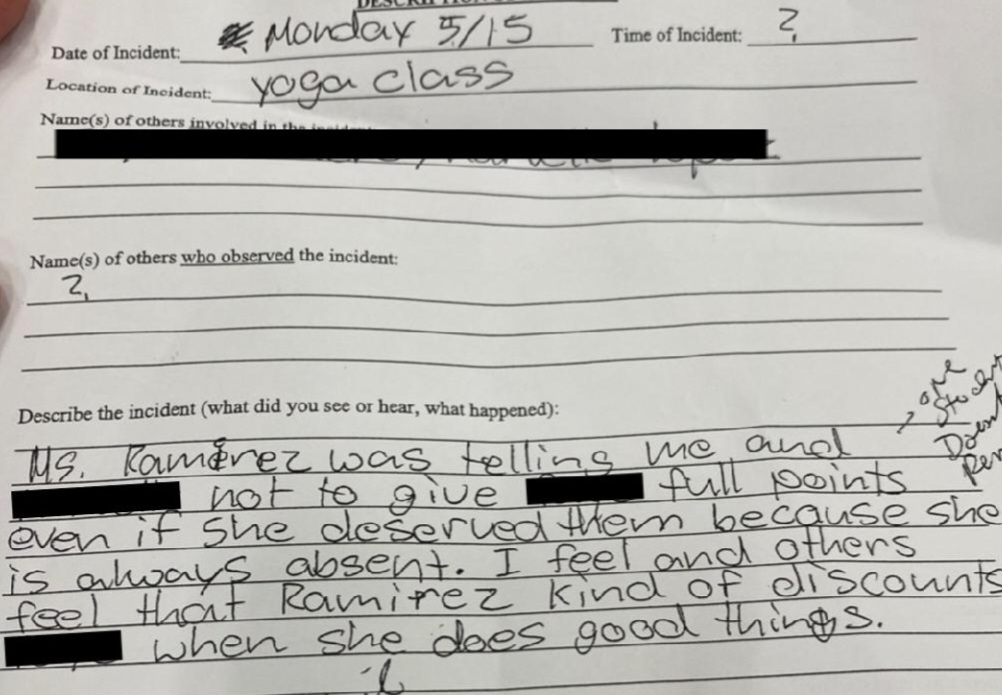 Monday 5/15
Date of Incident: Time of Incident: ?
Location of Incident: yoga class
Name(s) of others involved in the
Name(s) of others who observed the incident:
?
Describe the incident (what did you see or hear, what happened):
one
Student
Ms. Ramirez was telling me and
not to give full points
even if she deserved them because she
is always absent. I feel and others
feel that Ramirez kind of discounts
when she does good things.